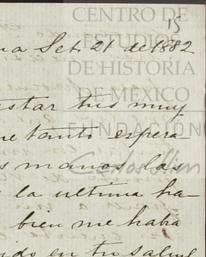 CENTRO DE
ESTUDIOS
DE HISTORIA
DE MÉXICO
FUNDACIÓN
Carlos Slim
15
na Set. 21 de 1882
star tus muy
me tanto espera
s manos las
la ultima ha-
bien me haba
ido en tu salud